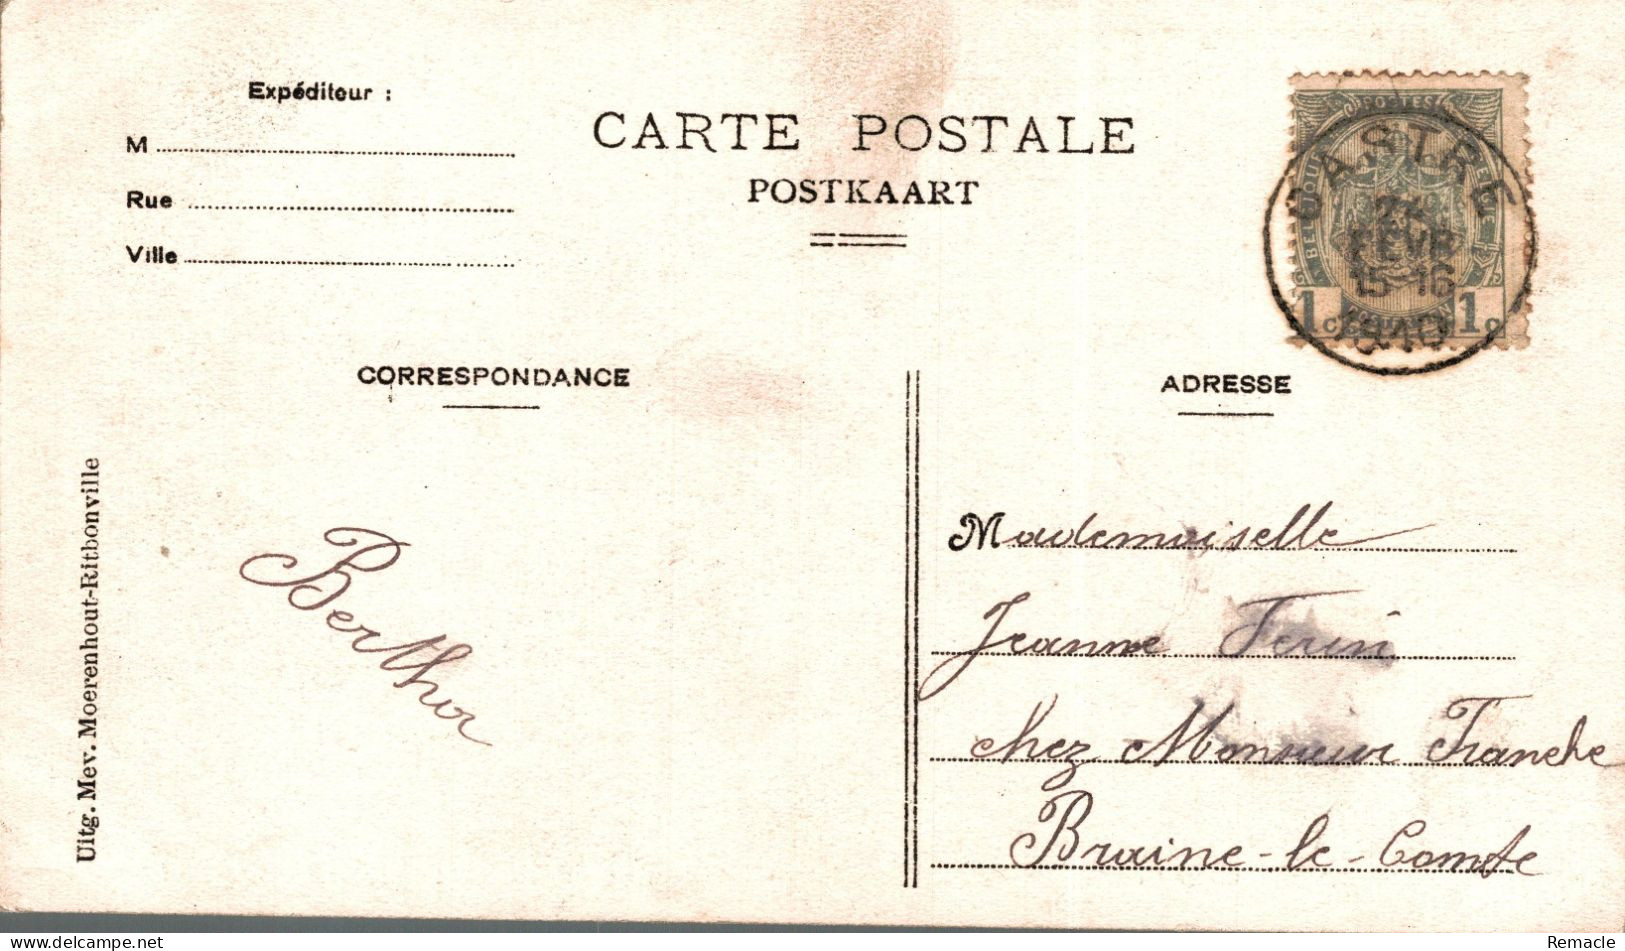 Expéditeur :
M
Rue
Ville
CARTE POSTALE
POSTKAART
POSTES
BELGIQUE
BELGIË
1 c
1 c
CASTRE
FEVR
15-16
1910
CORRESPONDANCE
ADRESSE
Uitg. Mev. Moerenhout-Ritbonville
Bertha
Mademoiselle
Jeanne
chez Monsieur Franche
Braine-le-Comte
delcampe.net
Remacle